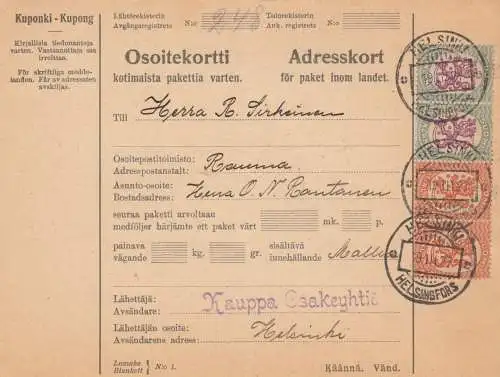 Kuponki - Kupong
Kirjallisia tiedonantoja
varten. Vastaanottaja saa
irroittaa.
För skriftliga medde-
landen. Får av adressaten
avskiljas.
Lähtörekisterin
Avgångsregistrets
N:o
248
Tulorekisterin
Ank. registrets
N:o
Osoitekortti Adresskort
kotimaista pakettia varten. för paket inom landet.
Till Herra R. Sirkeinen
Osoitepostitoimisto:
Adresspostanstalt:
Rauma
Asunto-osoite:
Bostadsadress:
Herra O. N. Rantanen
seuraa paketti arvoltaan
medföljer härjämte ett paket värt
mk. p.
painava
vägande
kg. gr.
sisältävä
innehållande
Mallia
Lähettäjä:
Avsändare:
Kauppa Osakeyhtiö
Lähettäjän osoite:
Avsändarens adress:
Helsinki
Lomake
Blankett
N:o 1.
Käännä. Vänd.
HELSINKI
HELSINGFORS
HELSINKI
HELSINKI
HELSINGFORS